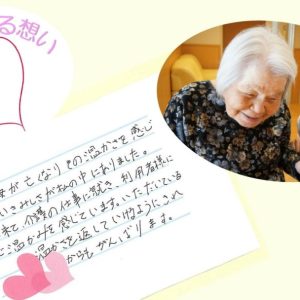 る想い
が亡くなりその温かさを感じ
いさみしさが私の中にありました。
来て、介護の仕事に就き、利用者様に
に温かみを感じています。いただいている
温かさを返していけるようにこれ
からもがんばります。